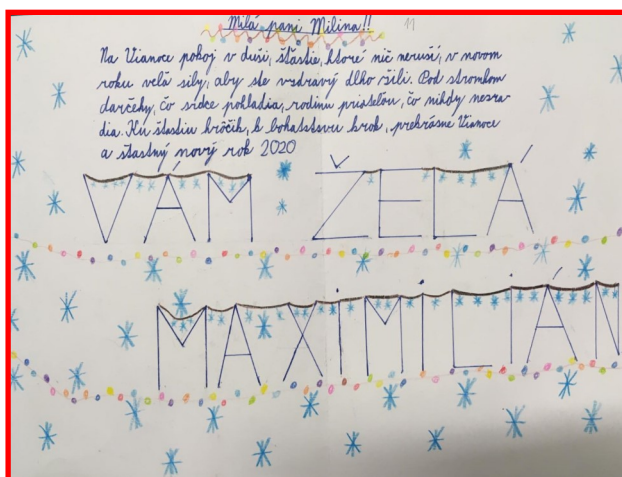 Milá pani Milina!!
11
Na Vianoce pokoj v duši, štastie, ktoré nič neruší, v novom
roku velá sily, aby ste vzdravý dlho žili. Pod stromkom
darčeky, čo srdce pohladia, rodinu priatelou, čo nikdy nezra-
dia. Ku štastiu króčik, k bohatstavu krok, prekrásne Vianoce
a štastný nový rok 2020
VÁM ŽELÁ
MAXIMILIÁN